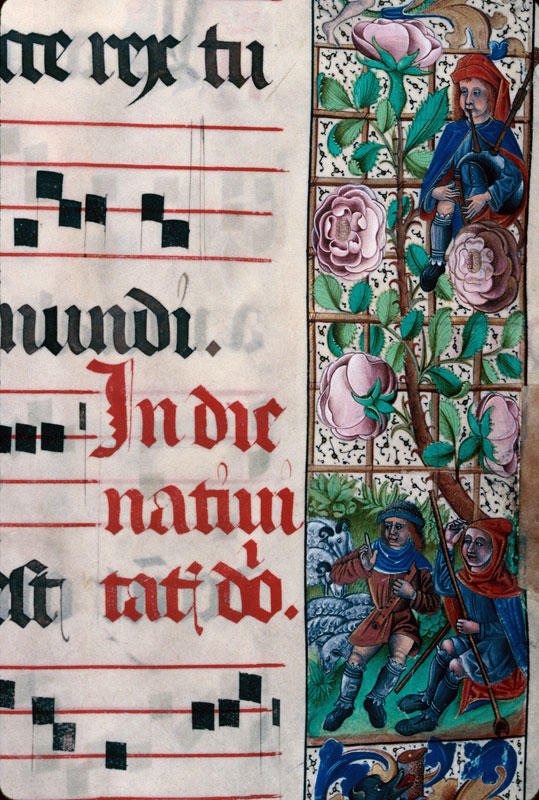 rex tu
mundi.
In die
natiui
est tatꝭ dō.